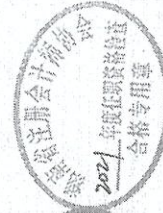 省注册会计师协会
2021 年度任职资格检查
合格专用章